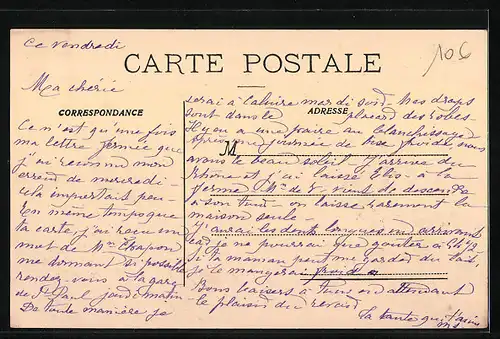 Ce vendredi
106
CARTE POSTALE
Ma chérie
CORRESPONDANCE
ADRESSE
M
Ce n'est qu'une fois
ma lettre fermée que
j'ai reconnu mon
erreur de mercredi -
cela importait peu -
En même temps que
ta carte, j'ai reçu un
mot de Mme Chapron
me donnant si possible
rendez-vous à la gare
de St Paul jeudi matin -
De toute manière je
serai à mardi soir - Mes draps
sont dans le placard des robes -
Il y en a une paire au blanchissage
Après une journée de bise froide nous
avons le beau soleil. J'arrive du
Rhône et j'ai laissé Elis à la
ferme. Mme de V. vient de descendre
à son tour - on laisse rarement la
maison seule
J'aurai les dents longues en arrivant
car je ne pourrai que goûter à 4h ½
Si maman peut me garder du lait
je le mangerai froid
Bons baisers à tous en attendant
le plaisir du revoir
Ta tante qui t'aime